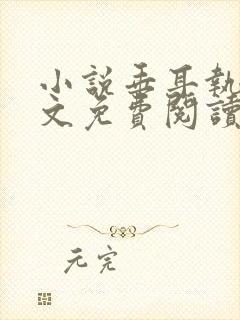 小說垂耳執
文免費閱讀
元完